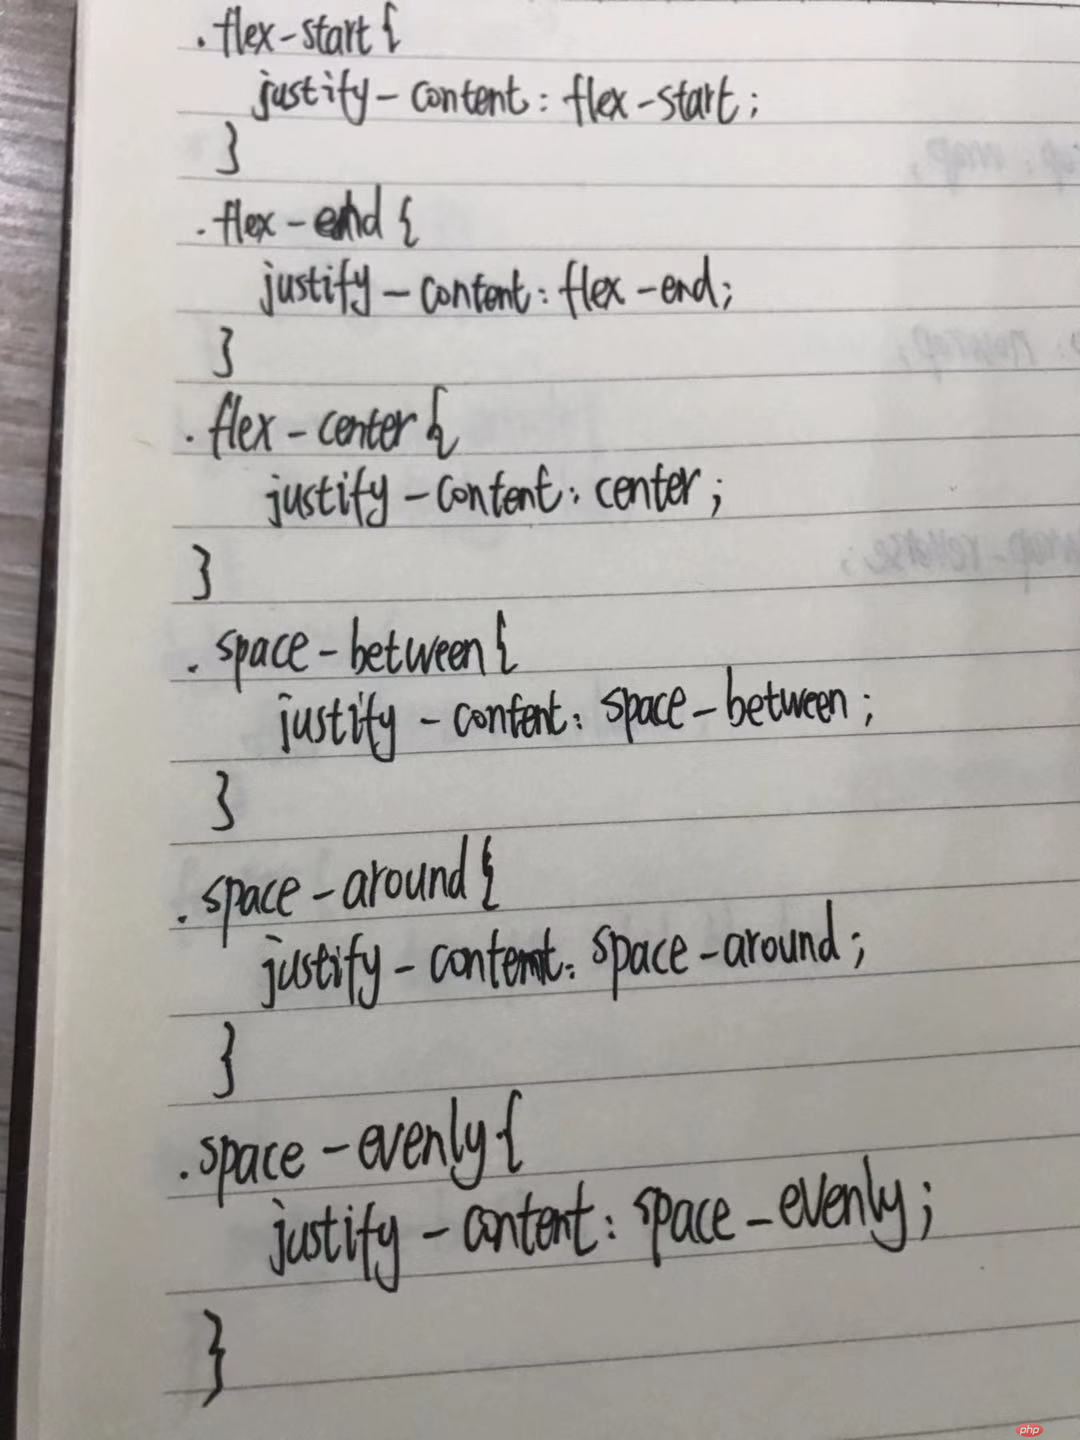 .flex-start{
justify-content: flex-start;
}
.flex-end{
justify-content: flex-end;
}
.flex-center{
justify-content: center;
}
.space-between{
justify-content: space-between;
}
.space-around{
justify-content: space-around;
}
.space-evenly{
justify-content: space-evenly;
}
php